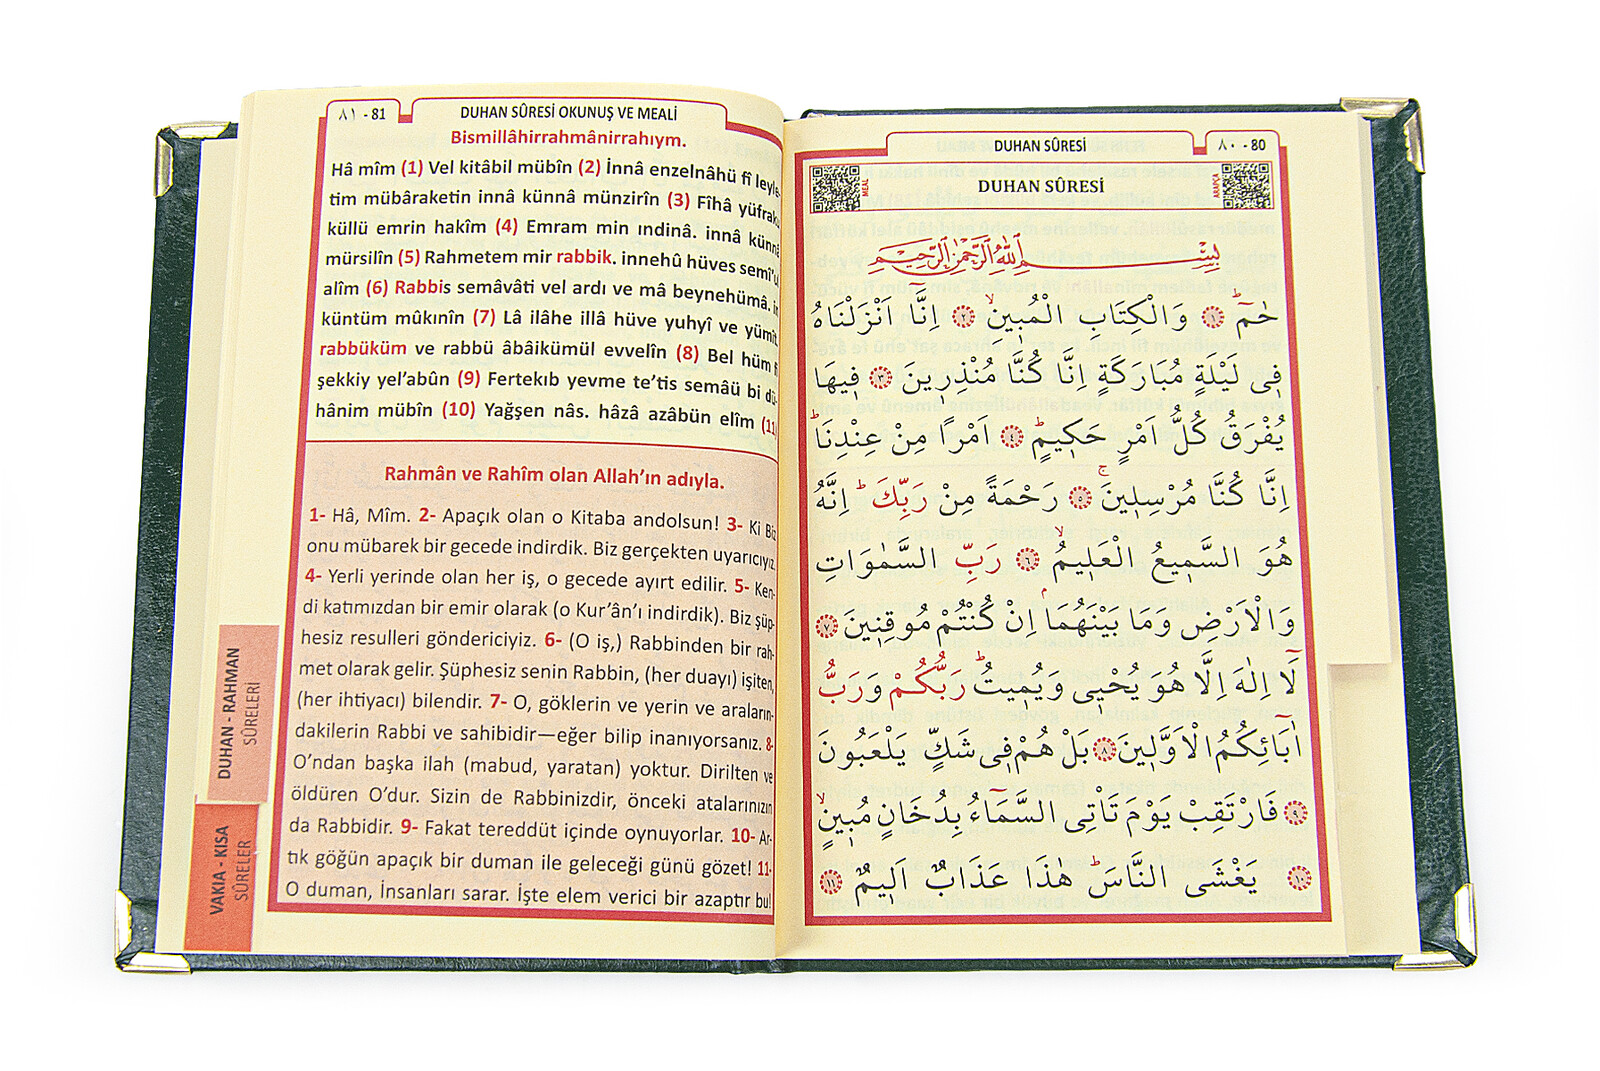 ٨١ - 81
DUHAN SÛRESİ OKUNUŞ VE MEALİ
Bismillâhirrahmânirrahıym.
Hâ mîm (1) Vel kitâbil mübîn (2) İnnâ enzelnâhü fî leyle-
tim mübâraketin innâ künnâ münzirîn (3) Fîhâ yüfraku
küllü emrin hakîm (4) Emram min ındinâ. innâ künnâ
mürsilîn (5) Rahmetem mir rabbik. innehû hüves semî'ul
alîm (6) Rabbis semâvâti vel ardı ve mâ beynehümâ. in
küntüm mûkınîn (7) Lâ ilâhe illâ hüve yuhyî ve yümît.
rabbüküm ve rabbü âbâikümül evvelîn (8) Bel hüm f
şekkiy yel'abûn (9) Fertekıb yevme te'tis semâü bi dü-
hânim mübîn (10) Yağşen nâs. hâzâ azâbün elîm (11)
Rahmân ve Rahîm olan Allah'ın adıyla.
1- Hâ, Mîm. 2- Apaçık olan o Kitaba andolsun! 3- Ki Biz
onu mübarek bir gecede indirdik. Biz gerçekten uyarıcıyız.
4- Yerli yerinde olan her iş, o gecede ayırt edilir. 5- Ken-
di katımızdan bir emir olarak (o Kur'ân'ı indirdik). Biz şüp-
hesiz resulleri göndericiyiz. 6- (O iş,) Rabbinden bir rah-
met olarak gelir. Şüphesiz senin Rabbin, (her duayı) işiten,
(her ihtiyacı) bilendir. 7- O, göklerin ve yerin ve araların-
dakilerin Rabbi ve sahibidir—eğer bilip inanıyorsanız. 8-
O'ndan başka ilah (mabud, yaratan) yoktur. Dirilten ve
öldüren O'dur. Sizin de Rabbinizdir, önceki atalarınızın
da Rabbidir. 9- Fakat tereddüt içinde oynuyorlar. 10- Ar-
tık göğün apaçık bir duman ile geleceği günü gözet! 11-
O duman, İnsanları sarar. İşte elem verici bir azaptır bu!
DUHAN - RAHMAN
SÛRELERİ
VAKIA - KISA
SÛRELER
DUHAN SÛRESİ
٨٠ - 80
MEAL
DUHAN SÛRESİ
ARAPÇA
بِسْمِ اللّٰهِ الرَّحْمٰنِ الرَّحِيمِ
حٰمٓ ۜ ﴿١﴾ وَالْكِتَابِ الْمُبِينِ ۙ ﴿٢﴾ اِنَّٓا اَنْزَلْنَاهُ
فِي لَيْلَةٍ مُبَارَكَةٍ اِنَّا كُنَّا مُنْذِرِينَ ﴿٣﴾ فِيهَا
يُفْرَقُ كُلُّ اَمْرٍ حَكِيمٍ ۜ ﴿٤﴾ اَمْرًا مِنْ عِنْدِنَا ۜ
اِنَّا كُنَّا مُرْسِلِينَ ۚ ﴿٥﴾ رَحْمَةً مِنْ رَبِّكَ ۜ اِنَّهُ
هُوَ السَّمِيعُ الْعَلِيمُ ۙ ﴿٦﴾ رَبِّ السَّمٰوَاتِ
وَالْاَرْضِ وَمَا بَيْنَهُمَا ۢ اِنْ كُنْتُمْ مُوقِنِينَ ﴿٧﴾
لَٓا اِلٰهَ اِلَّا هُوَ يُحْيِي وَيُمِيتُ ۜ رَبُّكُمْ وَرَبُّ
اٰبَٓائِكُمُ الْاَوَّلِينَ ﴿٨﴾ بَلْ هُمْ فِي شَكٍّ يَلْعَبُونَ
﴿٩﴾ فَارْتَقِبْ يَوْمَ تَأْتِي السَّمَٓاءُ بِدُخَانٍ مُبِينٍ ۙ
﴿١٠﴾ يَغْشَى النَّاسَ ۜ هٰذَا عَذَابٌ اَلِيمٌ ﴿١١﴾